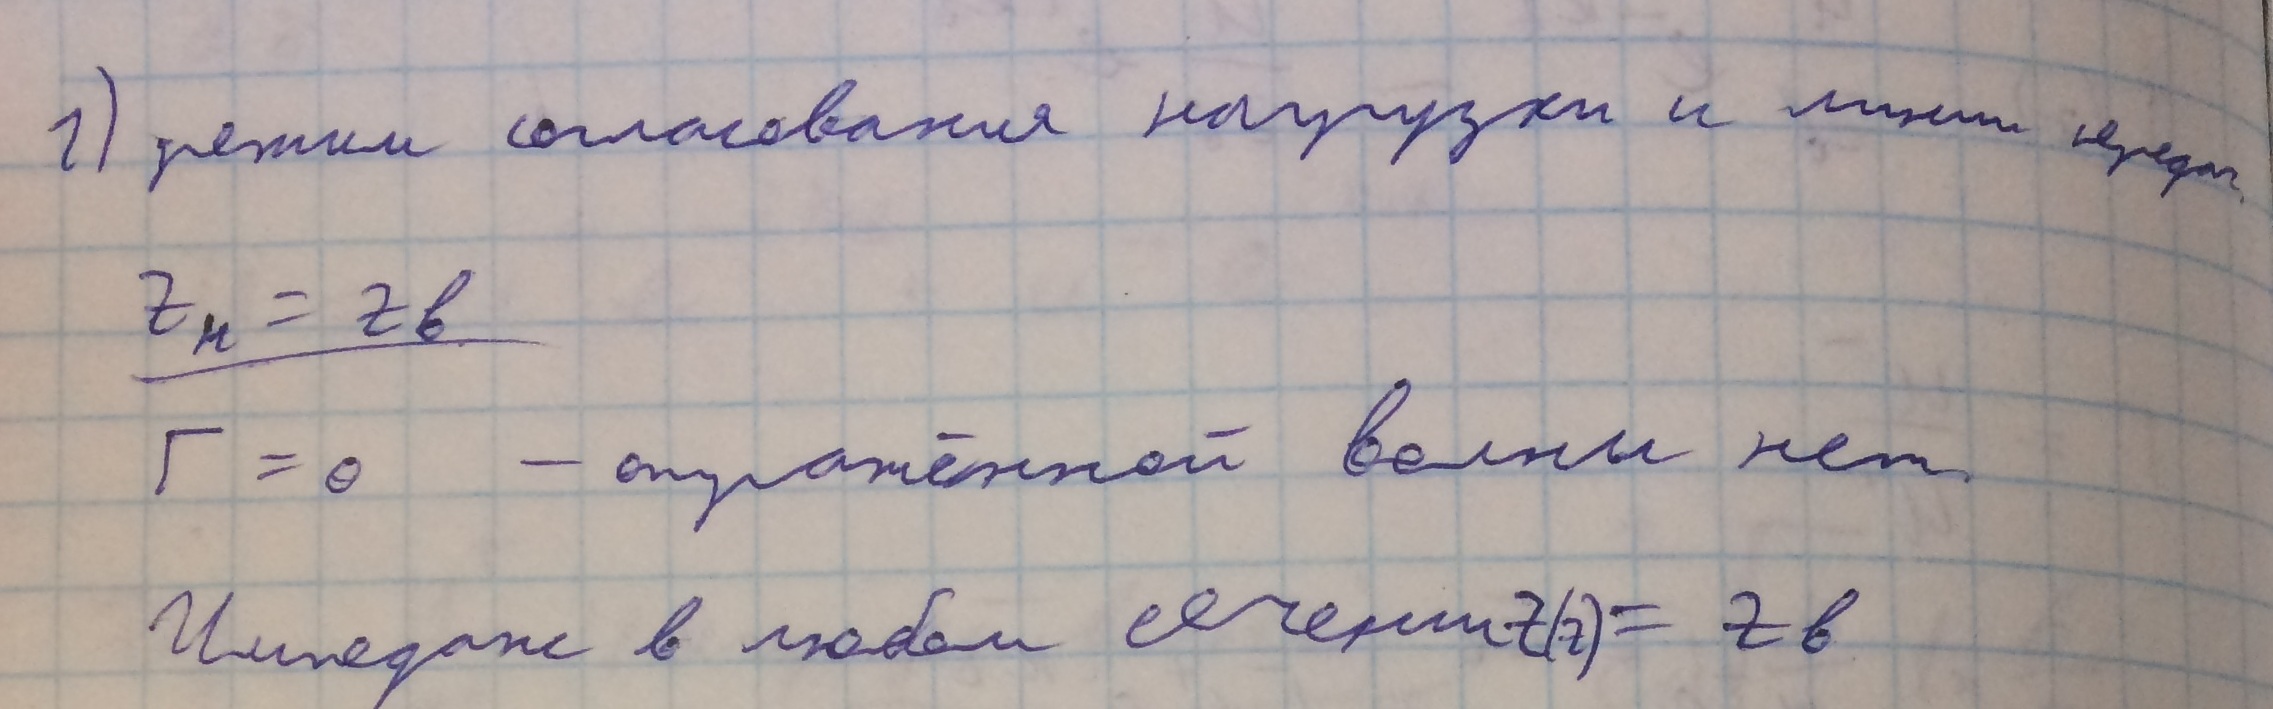 1) режим согласования нагрузки и линии передач
Zн = Zв
Г = 0 – отражённой волны нет
Импеданс в любом сечении Z(z) = Zв